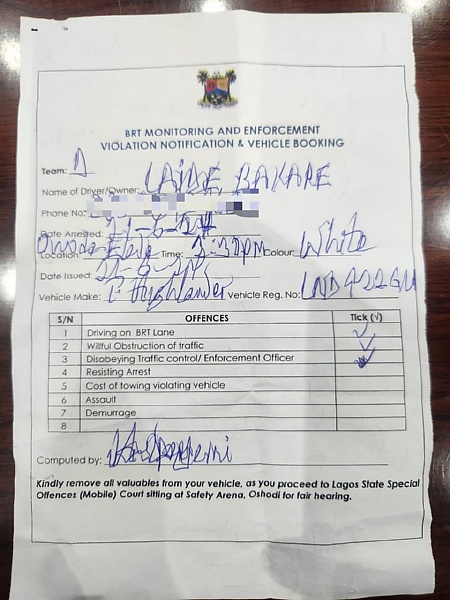 BRT MONITORING AND ENFORCEMENT
VIOLATION NOTIFICATION & VEHICLE BOOKING
Team: D
Name of Driver/Owner: LAIDE BAKARE
Phone No:
Date Arrested:
Location Time: 3:37PM Colour: White
Date Issued:
Vehicle Make: Highlander Vehicle Reg. No:
S/N OFFENCES Tick (√)
1 Driving on BRT Lane ✓
2 Willful Obstruction of traffic ✓
3 Disobeying Traffic control/ Enforcement Officer ✓
4 Resisting Arrest
5 Cost of towing violating vehicle
6 Assault
7 Demurrage
8
Computed by:
Kindly remove all valuables from your vehicle, as you proceed to Lagos State Special
Offences (Mobile) Court sitting at Safety Arena, Oshodi for fair hearing.